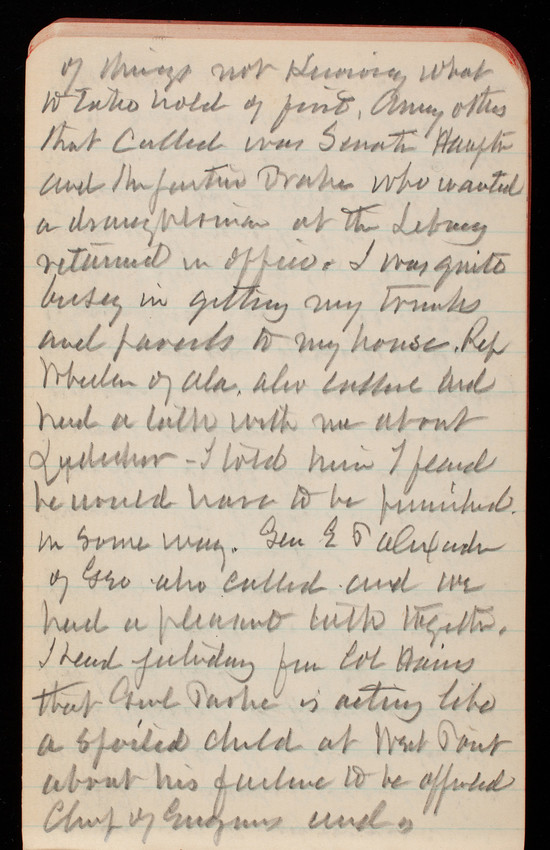 of things not knowing what
to take hold of first. Among others
that called was Senator
and Mr Justin Drake who wanted
a at the
returned in office. I was quite
busy in getting my trunks
and parcels to my house. Rep
Wheeler of Ala. also called and
had a talk with me about
Lydecker - I told him I feard
he would have to be punished
in some way. Gen E P Alexander
of Geo also called and we
had a pleasant talk together.
I heard yesterday from Col Hains
that Genl Parke is acting like
a spoiled child at West Point
about his failure to be appointed
Chief of Engineers and is